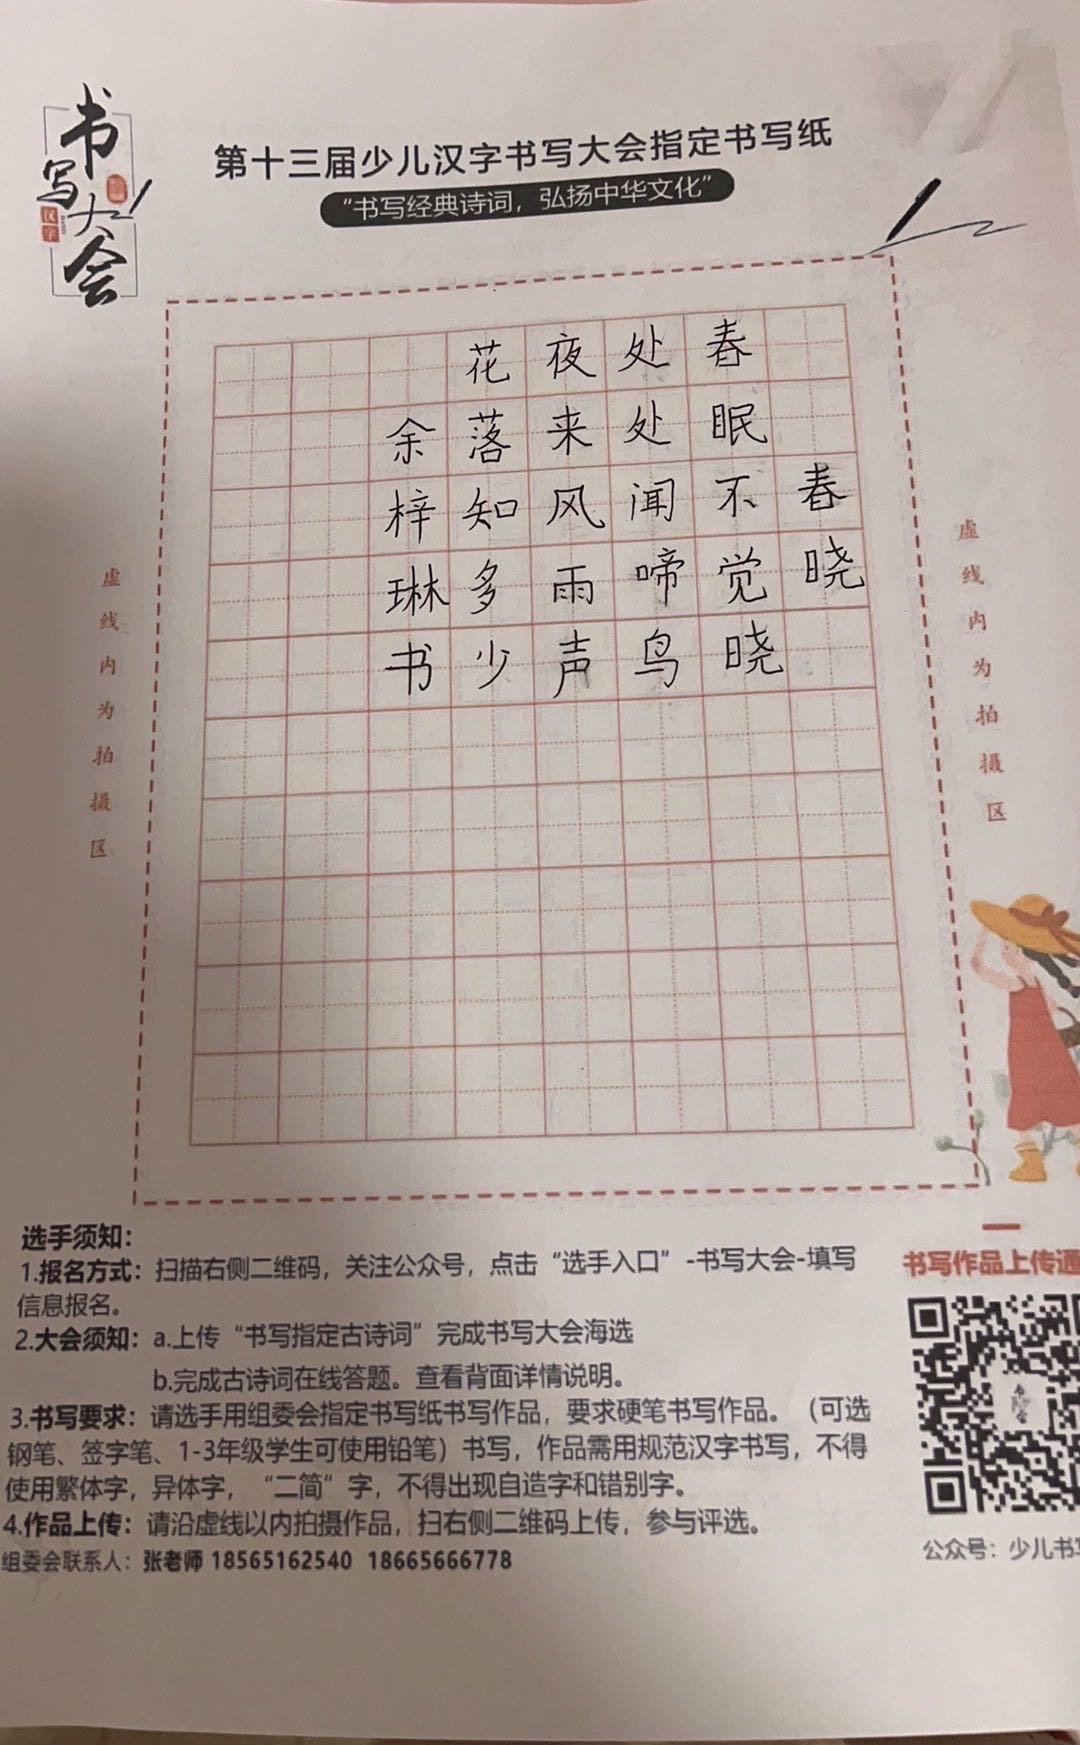 书写大会
汉字
第十三届少儿汉字书写大会指定书写纸
“书写经典诗词，弘扬中华文化”
春晓
春眠不觉晓
处处闻啼鸟
夜来风雨声
花落知多少
余梓琳书
虚线内为拍摄区
虚线内为拍摄区
选手须知：
1.报名方式：扫描右侧二维码，关注公众号，点击“选手入口”-书写大会-填写
信息报名。
2.大会须知：a.上传“书写指定古诗词”完成书写大会海选
b.完成古诗词在线答题。查看背面详情说明。
3.书写要求：请选手用组委会指定书写纸书写作品，要求硬笔书写作品。（可选
钢笔、签字笔、1-3年级学生可使用铅笔）书写，作品需用规范汉字书写，不得
使用繁体字，异体字，“二简”字，不得出现自造字和错别字。
4.作品上传：请沿虚线以内拍摄作品，扫右侧二维码上传，参与评选。
组委会联系人：张老师 18565162540 18665666778
书写作品上传通
公众号：少儿书写